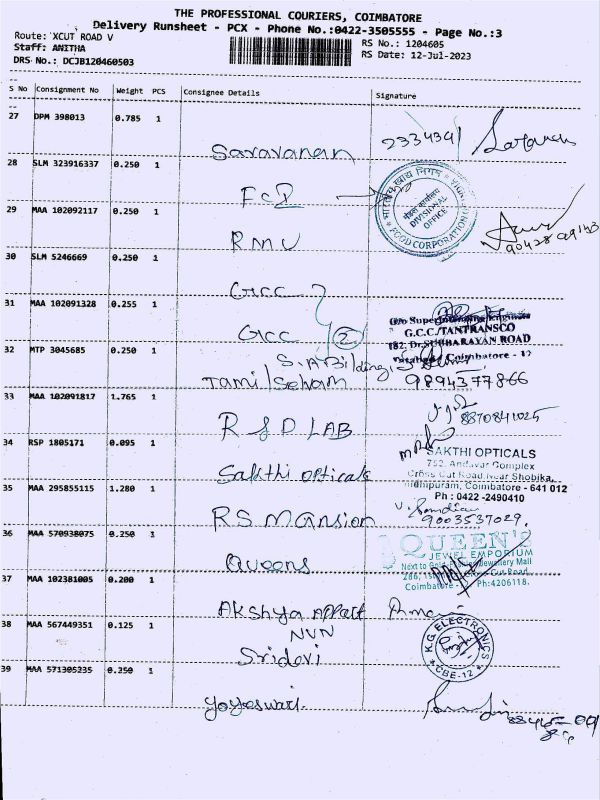 THE PROFESSIONAL COURIERS, COIMBATORE
Delivery Runsheet - PCX - Phone No.:0422-3505555 - Page No.:3
Route: XCUT ROAD V
RS No.: 1204605
Staff: ANITHA
RS Date: 12-Jul-2023
DRS No.: DCJB120460503
S No Consignment No Weight PCS Consignee Details Signature
27 DPM 398013 0.785 1
Saravanan
28 SLM 323916337 0.250 1
FCI
भारतीय खाद्य निगम
मंडल कार्यालय
DIVISIONAL
OFFICE
FOOD CORPORATION
29 MAA 102092117 0.250 1
RMV
30 SLM 5246669 0.250 1
GCC
31 MAA 102091328 0.255 1
G.C.C./TANTRANSCO
GCC 2
182, Dr.SUBBARAYAN ROAD
Coimbatore - 12
32 MTP 3045685 0.250 1
S.A Building
Tamil Selvam 9894377866
33 MAA 102091817 1.765 1
8870841025
R & D LAB
34 RSP 1805171 0.095 1
SAKTHI OPTICALS
752, Andavar Complex
Cross Cut Road, Near Shobika,
Coimbatore - 641 012
Ph : 0422 -2490410
Sakthi opticals
35 MAA 295855115 1.280 1
RS Mansion 9003537029.
36 MAA 570938075 0.250 1
QUEEN'S
JEWEL EMPORIUM
Queens
Ph:4206118.
37 MAA 102381005 0.200 1
Akshya Appart
38 MAA 567449351 0.125 1
NVN
Sridevi
K.G. ELECTRONICS
CBE-12
39 MAA 571305235 0.250 1
Yogeswari.